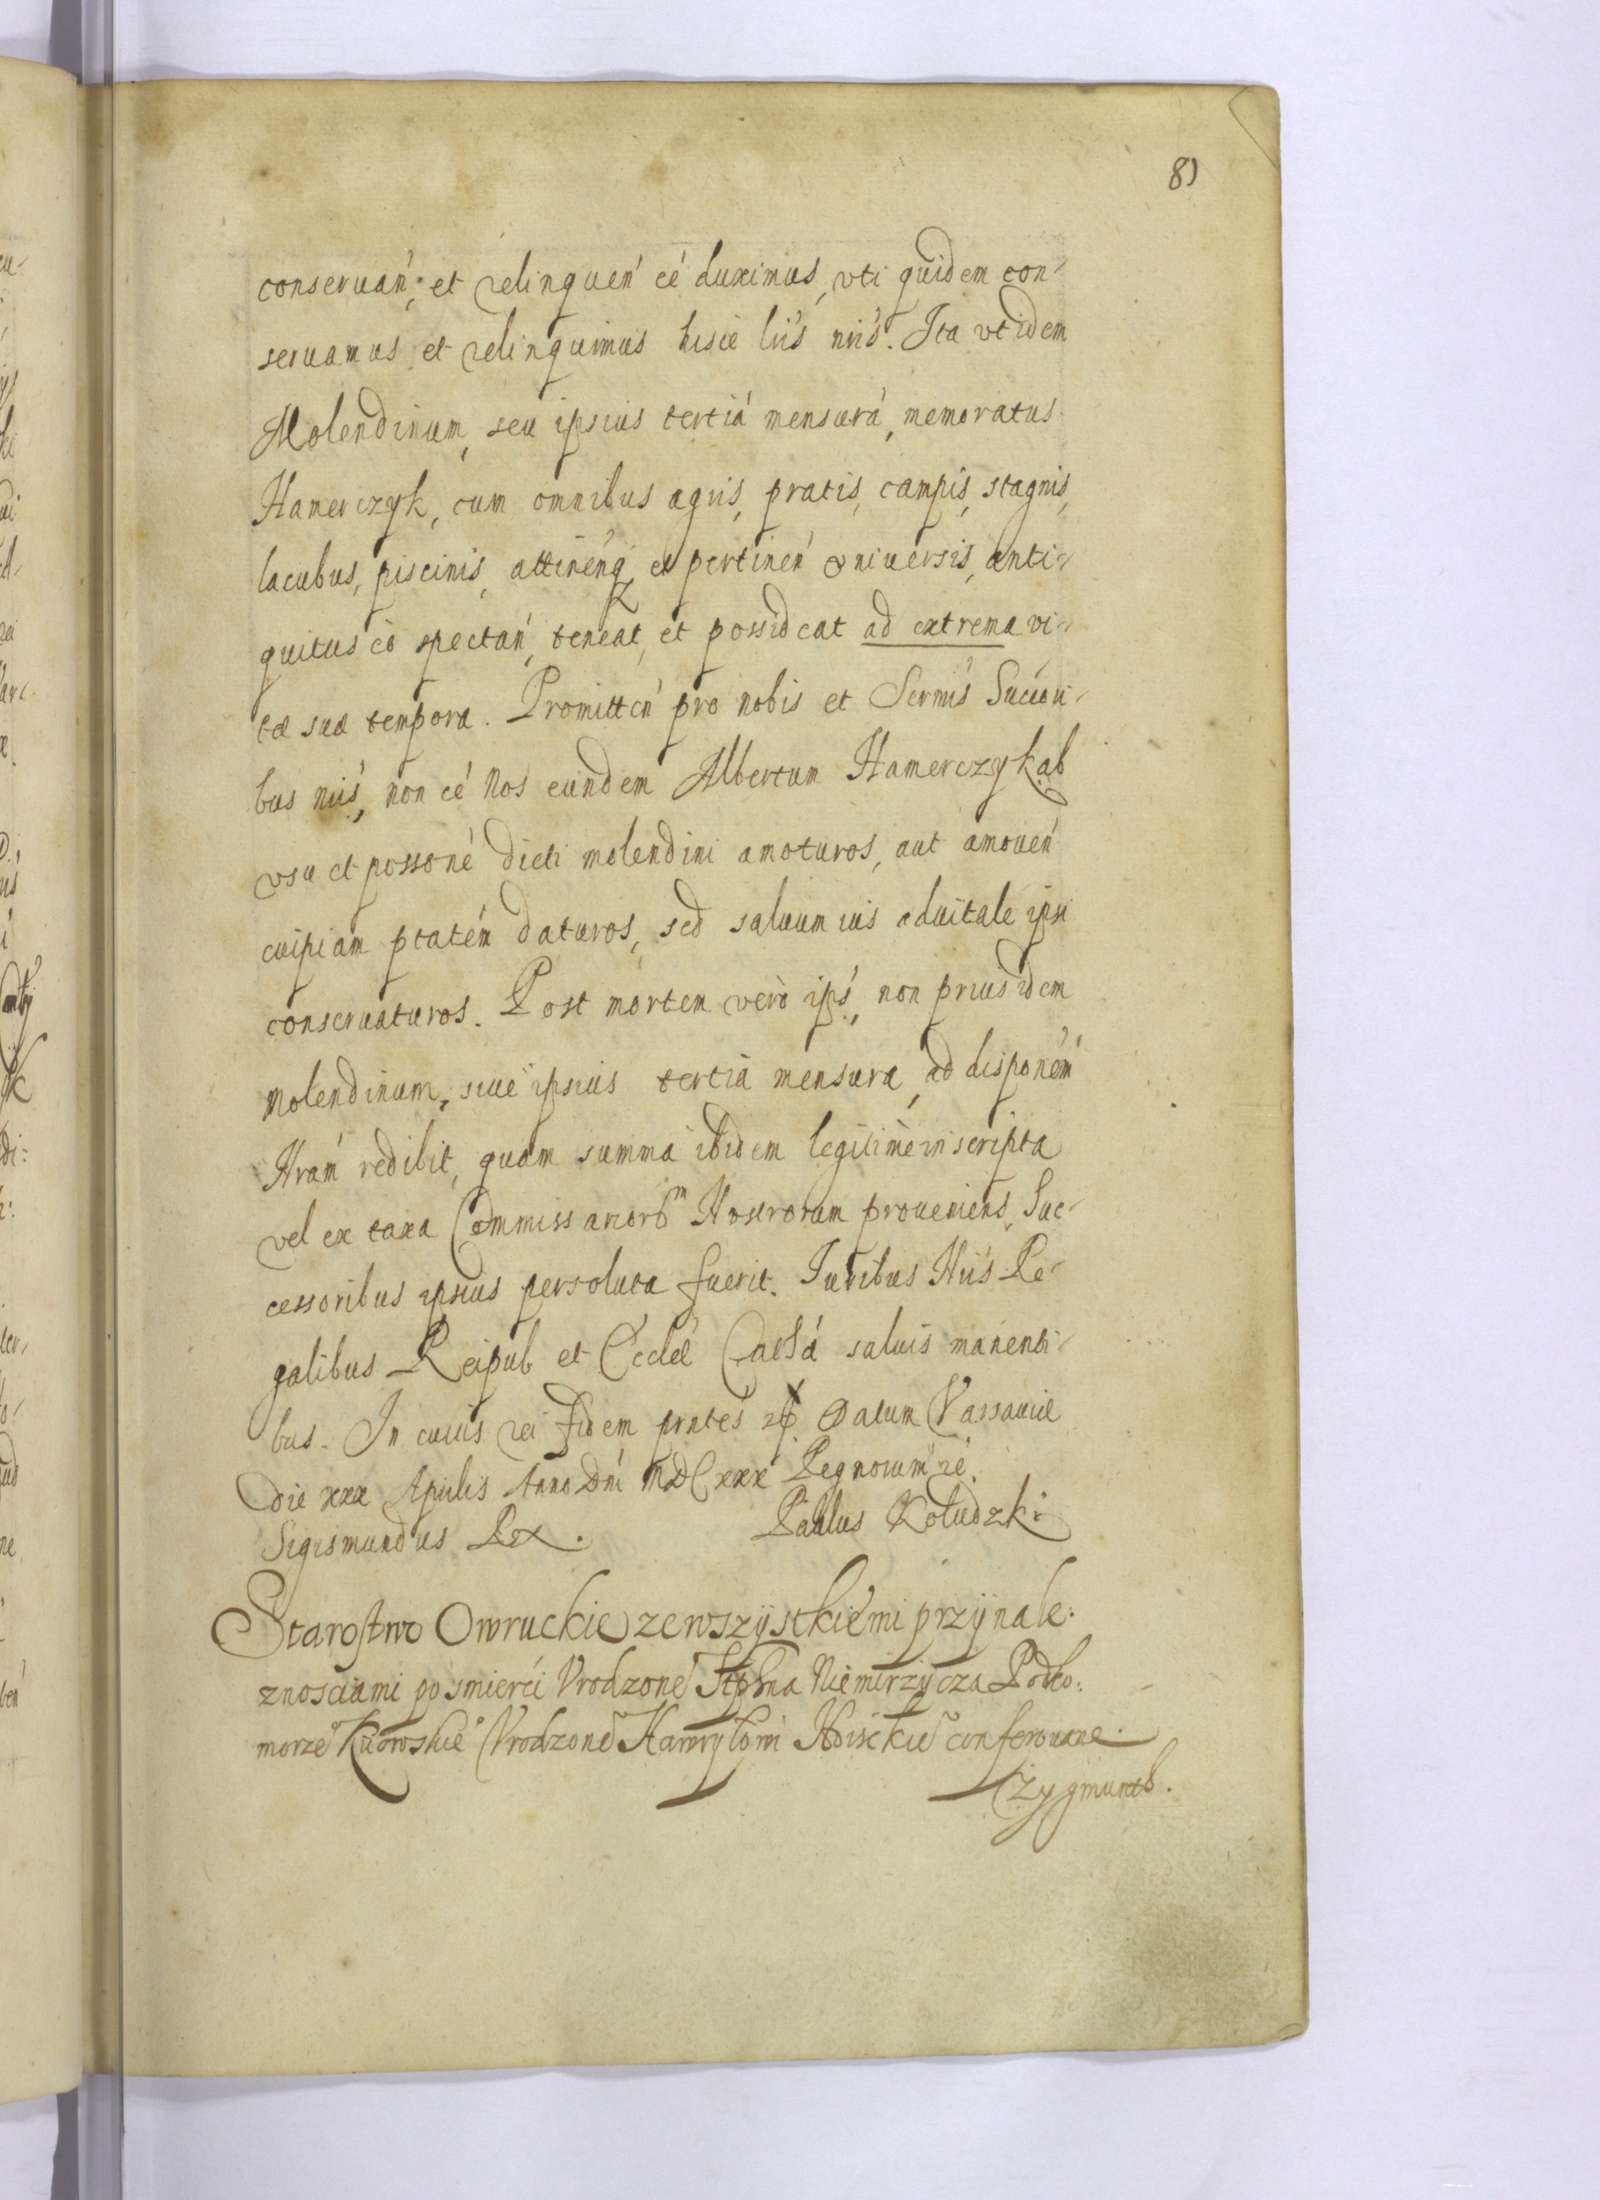 81
conseruań; et relinqueń eé duximus, vti quidem con-
seruamus et relinquimus hisce lr̃is nr̃is. Ita vt idem
Molendinum, seu ipsius tertiá mensurá, memoratus
Hamerczyk, cum omnibus agris, pratis, campis, stagnis,
lacubus, piscinis, attineńq et pertineń vniuersis, anti-
quitus eò spectań, teneat, et possideat ad extrema vi-
tæ suæ tempora. Promitteń pro nobis et Sermis Succori-
bus nr̃is, non eé Nos eundem Albertum Hamerczyk ab
vsu et possoné dicti molendini amoturos, aut amoueń
cuipiam ptatém daturos, sed saluum ius aduitale ipsi
conseruaturos. Post mortem verò ips̃, non prius idem
Molendinum, siue ipsius tertià mensura, ad disponém
Nrám redibit, quam summa ibidem legitimè inscripta
vel ex taxa Commissariorũm Nostrorum proueniens, Suc-
cessoribus ipsius persoluta fuerit. Iuribus Nr̃is Re-
galibus Reipub et Eccleé Cathá saluis manenti-
bus. In cuius rei fidem prntes etc. Datum Varsauiæ
die xxx Aprilis Anno Dni MDCxxx Regnorum ré.
Sigismundus Rex. Paulus Kołudzki
Starostwo Owruckie ze wszystkiemi przynale:
znosciami po smierci Vrodzone Stphna Niemirzycza Podko:
morze Kiiowskie Vrodzone Hawryłowi Hoisckie conferowane.
Zygmuntb.